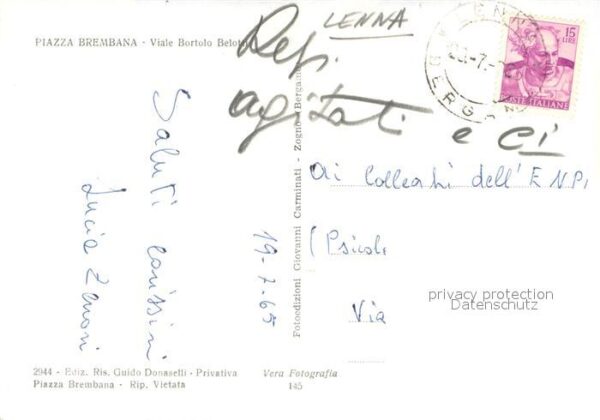 PIAZZA BREMBANA - Viale Bortolo Belotti
LENNA
agitati e ci
15
LIRE
POSTE ITALIANE
LENNA
BERGAMO
Saluti carissimi
Lucia Zanoni
19-7-65
Fotoedizioni Giovanni Carminati - Zogno (Bergamo)
Ai Colleghi dell'E.N.P.I
(Psicolo
Via
privacy protection
Datenschutz
2944 - Ediz. Ris. Guido Donaselli - Privativa
Piazza Brembana - Rip. Vietata
Vera Fotografia
145